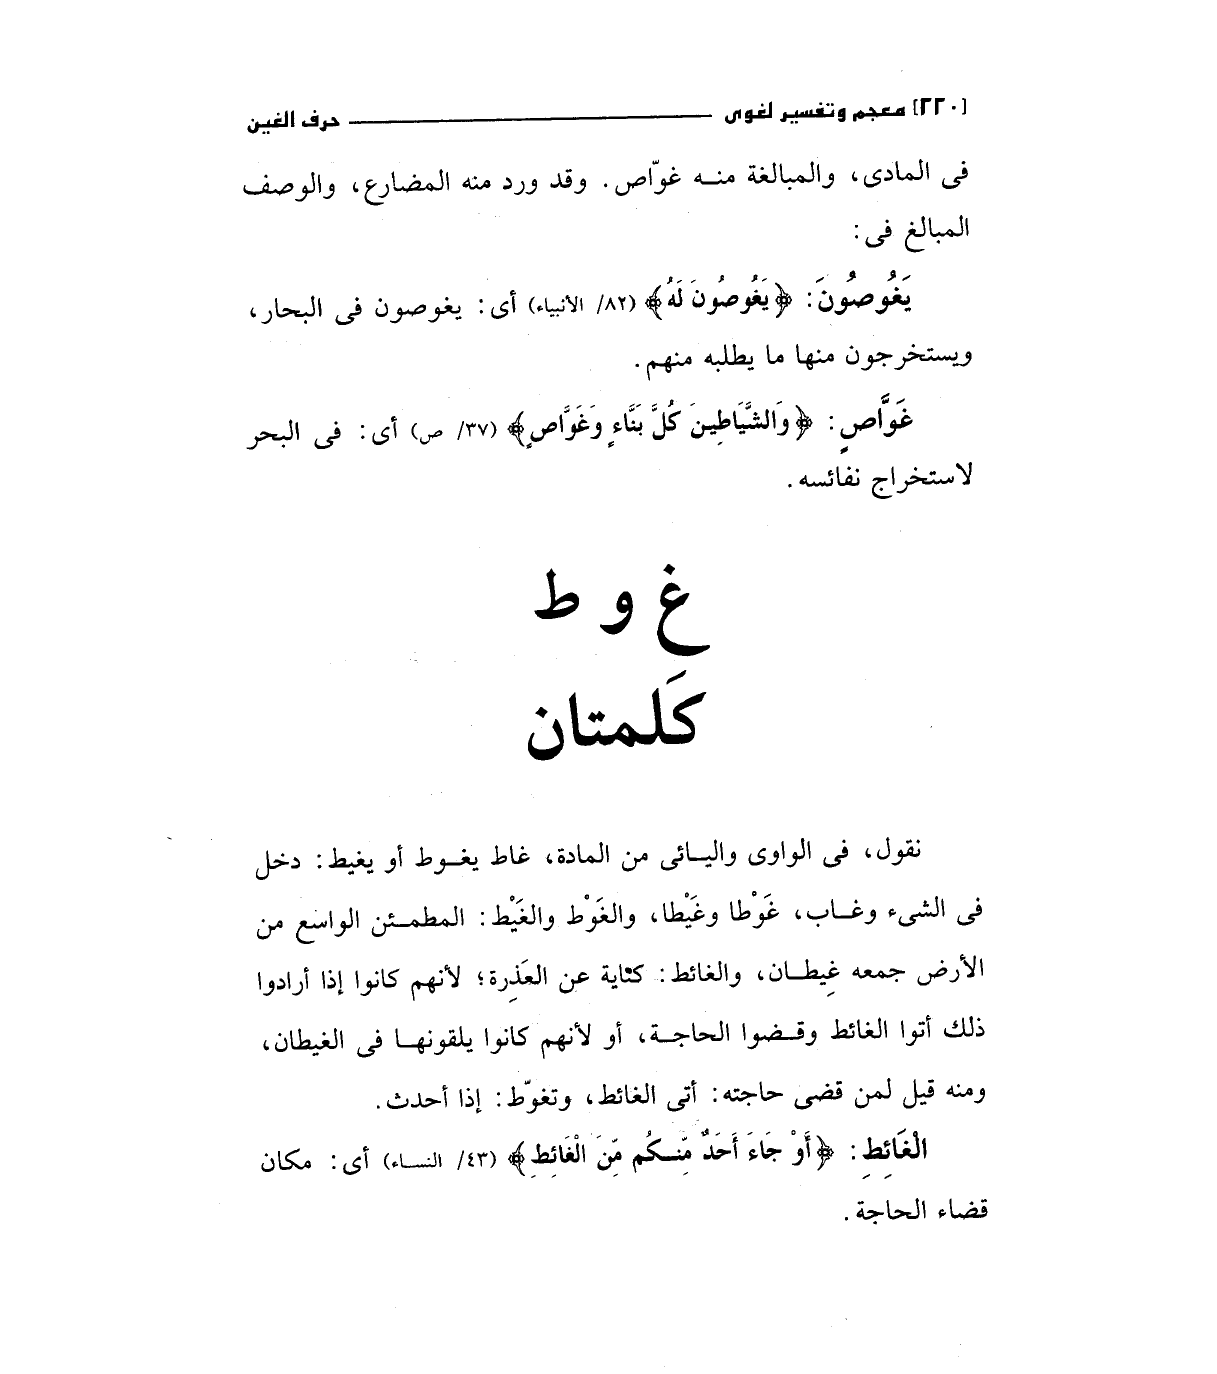 [٢٢٠] معجم وتفسير لغوى حرف الغين
فى المادى، والمبالغة منه غوّاص. وقد ورد منه المضارع، والوصف
المبالغ فى:
يَغُوصُونَ: ﴿يَغُوصُونَ لَهُ﴾ (٨٢/ الأنبياء) أى: يغوصون فى البحار،
ويستخرجون منها ما يطلبه منهم.
غَوَّاصٍ: ﴿وَالشَّيَاطِينَ كُلَّ بَنَّاءٍ وَغَوَّاصٍ﴾ (٣٧/ ص) أى: فى البحر
لاستخراج نفائسه.
غ و ط
كَلمتان
نقول، فى الواوى واليائى من المادة، غاط يغوط أو يغيط: دخل
فى الشىء وغاب، غَوْطا وغَيْطا، والغَوْط والغَيْط: المطمئن الواسع من
الأرض جمعه غِيطان، والغائط: كناية عن العَذِرة؛ لأنهم كانوا إذا أرادوا
ذلك أتوا الغائط وقضوا الحاجة، أو لأنهم كانوا يلقونها فى الغيطان،
ومنه قيل لمن قضى حاجته: أتى الغائط، وتغوّط: إذا أحدث.
الْغَائِطِ: ﴿أَوْ جَاءَ أَحَدٌ مِّنكُم مِّنَ الْغَائِطِ﴾ (٤٣/ النساء) أى: مكان
قضاء الحاجة.